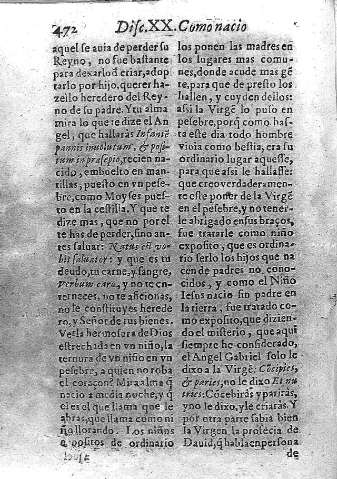 472 Disc. XX. Como nacio
aquel se auia de perder su
Reyno, no fue bastante
para dexarlo d̃ criar, adop
tarlo por hijo, querer ha-
zello heredero del Rey-
no de su padre. Y tu alma
mira lo que te dize el An
gel, que hallaràs Infantẽ
pannis inuolutum, & posi-
tum in præsepio, rezien na
cido, embuelto en man-
tillas, puesto en vn pese-
bre, como Moyses pues-
to en la cestilla. Y que te
dize mas, que no por el
te has de perder, sino an-
tes saluar: Natus est vo-
bis saluator: y que es tu
deudo, tu carne, y sangre,
Verbum caro, y no te en-
terneces, no te aficionas,
no le constituyes herede
ro, y Señor de tus bienes.
Ves la hermosura de Dios
estrechada en vn niño, la
ternura de vn niño en vn
pesebre, a quien no roba
el coraçon? Mira alma q̃
nacio a media noche, y q̃
el es el que llama que le
abras, que llama como ni
ño llorando. Los niños
de ordinario
los ponen las madres en
los lugares mas comu-
nes, donde acude mas gẽ
te, para que de presto los
hallen, y cuyden dellos:
assi la Virgẽ lo puso en
pesebre, porq̃ como has-
ta este dia todo hombre
viuia como bestia, era su
ordinario lugar aquesse,
para que assi le hallasse:
que creo verdaderamen-
te este poner de la Virgẽ
en el pesebre, y no tener-
le abrigado en sus braços,
fue tratarle como niño
exposito, que es ordina-
rio serlo los hijos que na
cen de padres no cono-
cidos, y como el Niño
Iesus nacio sin padre en
la tierra, fue tratado co-
mo exposito, que dizien-
do el misterio, que aqui
siempre he considerado,
el Angel Gabriel solo le
dixo a la Virgẽ: Cõcipies,
& paries, no le dixo Et nu
tries: Cõcebiràs y pariràs,
y no le dixo, y le criaràs. Y
por otra parte sabia bien
la Virgen la profecia de
Dauid, q̃ habla en persona
de